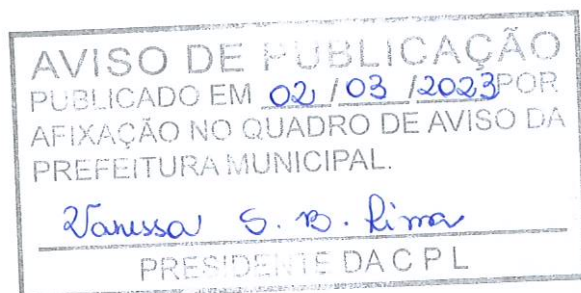 AVISO DE PUBLICAÇÃO
PUBLICADO EM 02/03/2023 POR
AFIXAÇÃO NO QUADRO DE AVISO DA
PREFEITURA MUNICIPAL.
Vanessa S. B. Lima
PRESIDENTE DA C P L